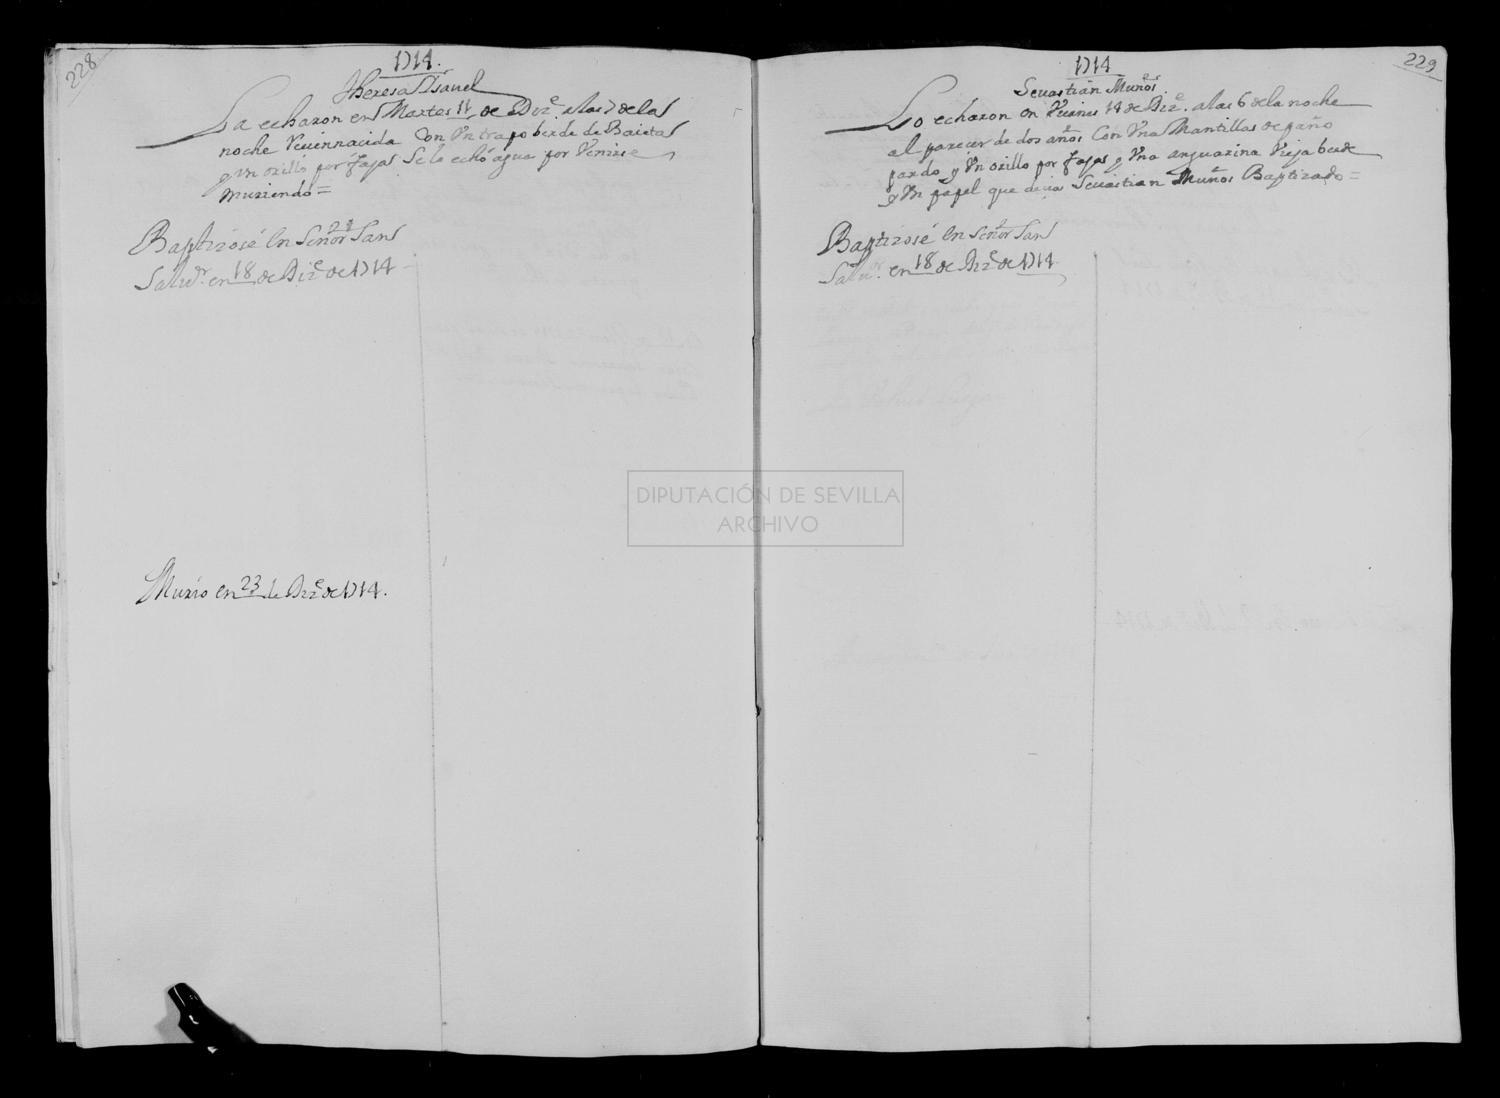 228
1714.
Theresa Ysauel
La echaron en Martes 11 de Dizᵉ. a las 7 de la
noche Reuiennacida con Vn trapo berde de Baieta
y un orillo por fajas Se le echó agua por Venirse
muriendo =
Baptizosé En Señor San
Saluʳ. en 18 de Dizᵉ de 1714
Murio en 23 de Dizᵉ de 1714.
229
1714
Seuastian Muños.
Lo echaron en Viernes 14 de Dizᵉ. a las 6 de la noche
al parecer de dos años Con Vna Mantillas de paño
pardo y Vn orillo por fajas y Vna anguarina Vieja berde
y Vn papel que decia Seuastian Muños Baptizado =
Baptizosé En Señor San
Saluʳ. en 18 de Dizᵉ de 1714
DIPUTACIÓN DE SEVILLA
ARCHIVO